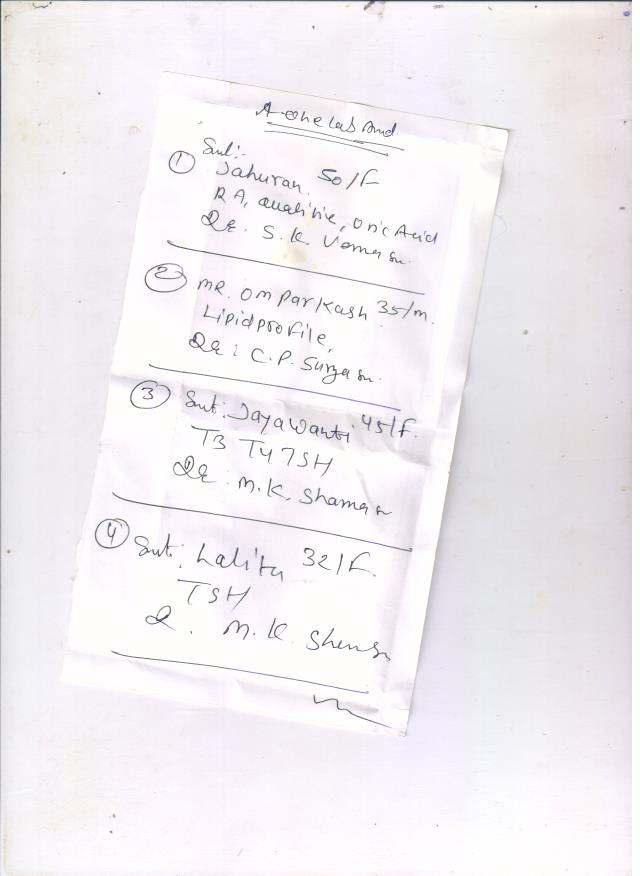 A-one Lab And
① Smt:-
Jahuran. 50/F
RA, qualitive, Uric Acid
Dr. S. K. Verma
② MR. Om Parkash 35/m.
Lipid profile,
Dr: C.P. Surya
③ Smt: Jayawanti 45/F.
T3 T4 TSH
Dr: M.K. Sharma
④ Smt: Lalita 32/F.
TSH
Dr. M.K. Sharma